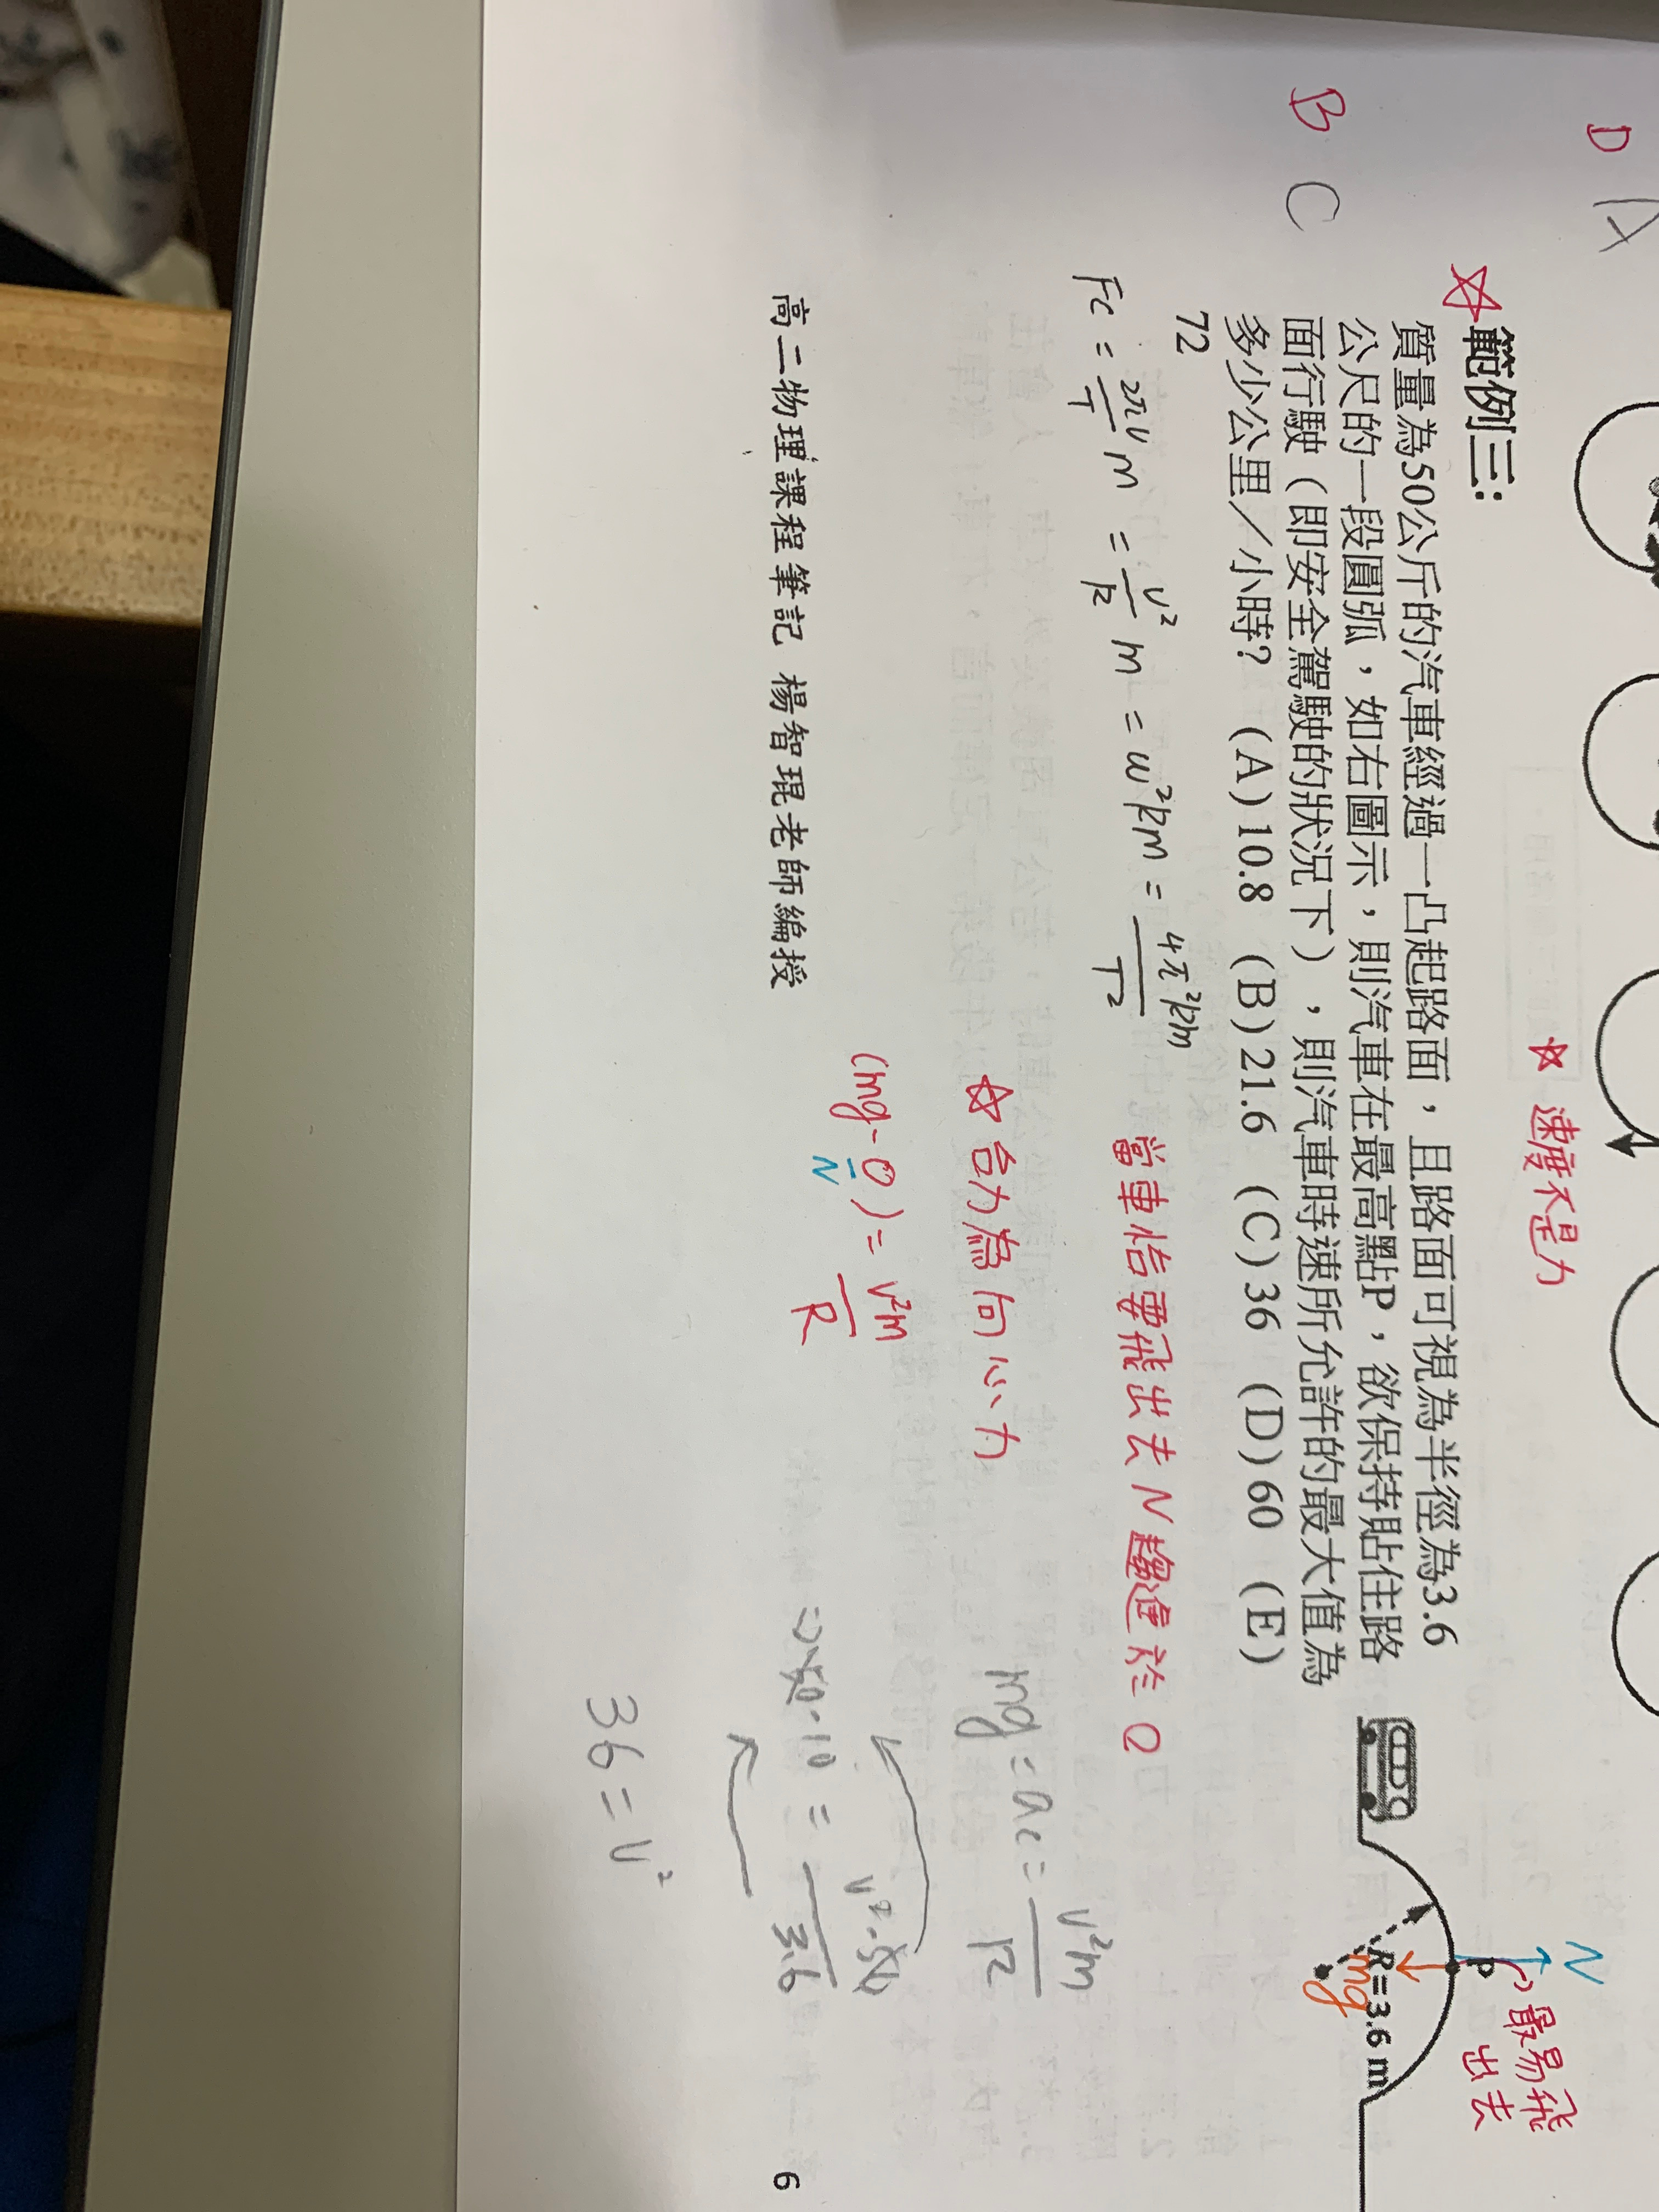 ☆ 速度不是力
D A
☆範例三:
B C
質量為50公斤的汽車經過一凸起路面，且路面可視為半徑為3.6
公尺的一段圓弧，如右圖示，則汽車在最高點P，欲保持貼住路
面行駛（即安全駕駛的狀況下），則汽車時速所允許的最大值為
多少公里／小時？ (A)10.8 (B)21.6 (C)36 (D)60 (E)
72
N
最易飛
出去
P
R=3.6 m
mg
Fc = 2πv/T m = v²/R m = w²Rm = 4π²Rm/T²
當車恰要飛出去 N 趨進於 0
☆ 合力為向心力
(mg-0) = v²m/R
N
mg = ac = v²m/R
⇒ 50·10 = v²·50/3.6
36 = v²
高二物理課程筆記 楊智琨老師編授
6